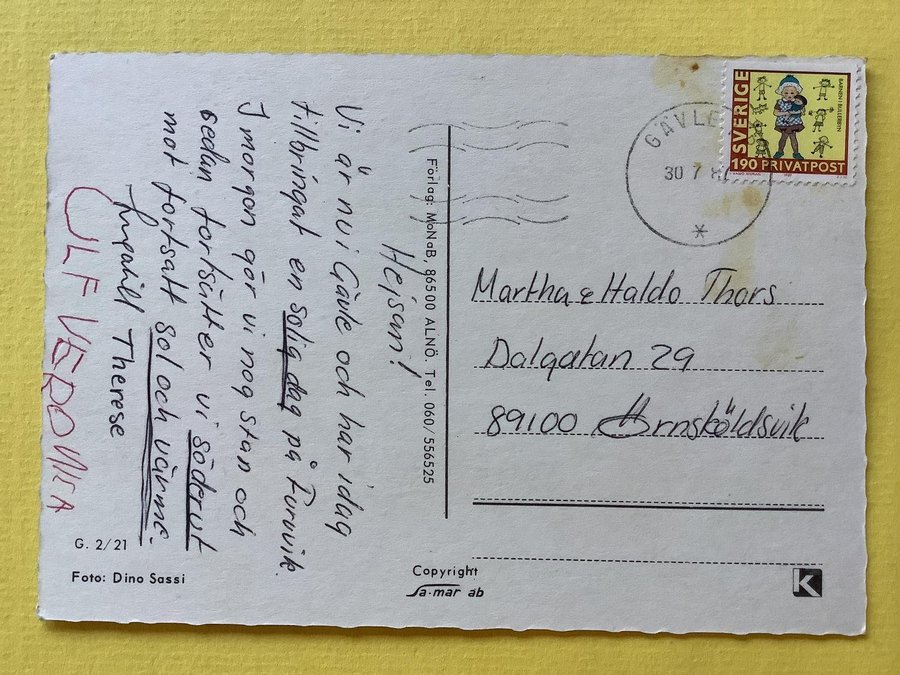 Hejsan!
Vi är nu i Gävle och har idag
tillbringat en solig dag på Furuvik.
I morgon gör vi nog stan och
sedan fortsätter vi söderut
mot fortsatt sol och värme.
Ingahill Therese
ULF VERONICA
G. 2/21
Foto: Dino Sassi
Förlag: MoNaB. 86500 ALNÖ. Tel. 060/556525
Copyright
Sa-mar ab
GÄVLE
30 7
SVERIGE
BARNEN I BULLERBYN
190 PRIVATPOST
Martha & Haldo Thors
Dalgatan 29
89100 Örnsköldsvik
K